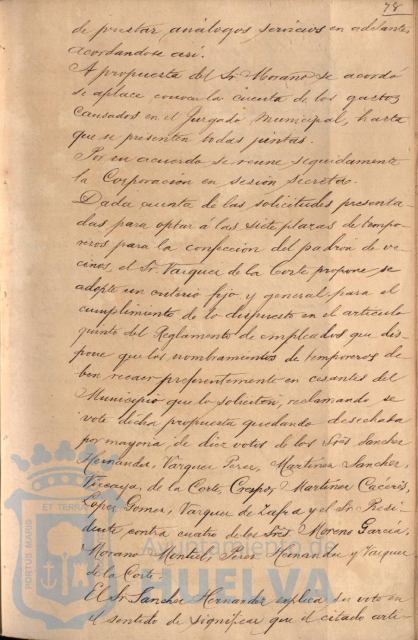 78
de prestar análogos servicios en adelante,
acordandose así.
A propuesta del Sr Morano se acordó
se aplace conocer la cuenta de los gastos
causados en el Juzgado Municipal, hasta
que se presenten todas juntas.
Por su acuerdo se reune seguidamente
la Corporación en sesión secreta.
Dada cuenta de las solicitudes presenta-
das para optar á las siete plazas de tempo-
reros para la confección del padrón de ve-
cinos, el Sr. Vazquez de la Corte propone se
adopte un criterio fijo y general para el
cumplimiento de lo dispuesto en el artículo
quinto del Reglamento de empleados que dis-
pone que los nombramientos de temporeros de-
ben recaer preferentemente en cesantes del
Municipio que lo soliciten, reclamando se
vote dicha propuesta quedando desechada
por mayoria de diez votos de los Sres Sanchez
Hernandez, Vazquez Perez, Martinez Sanchez,
Vizcaya, de la Corte, Crespo, Martinez Caceres,
Lopez Gomez, Vazquez de Zafra y el Sr. Presi-
dente contra cuatro de los Sres. Moreno García,
Morano Montiel, Perez Hernandez y Vazquez
de la Corte.
El Sr Sanchez Hernandez explica su voto en
el sentido de significar que el citado arti-
PORTUS MARIS
ET TERRAE
Ayuntamiento de
HUELVA